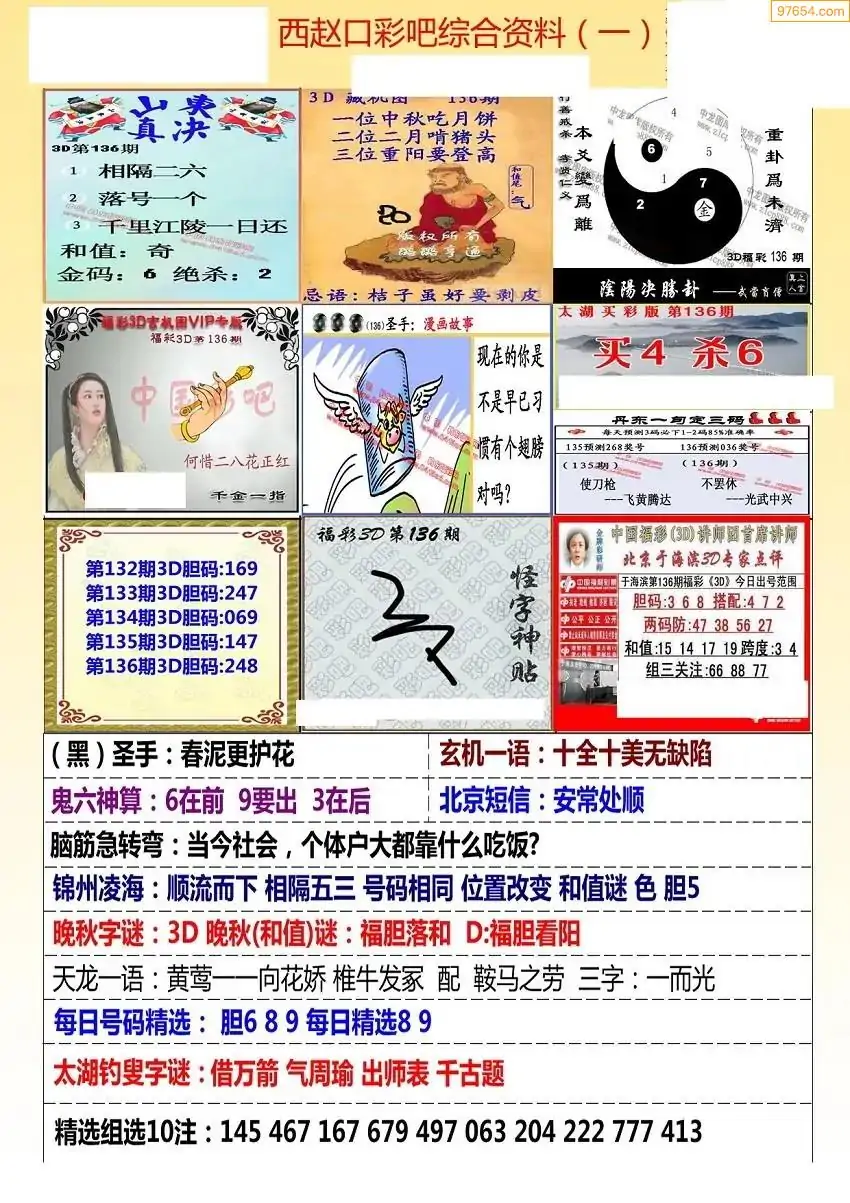 97654.com
西赵口彩吧综合资料（一）
山夷
真决
3D第136期
1 相隔二六
2 落号一个
3 千里江陵一日还
和值：奇
金码：6 绝杀：2
3D 藏机图 136期
一位中秋吃月饼
二位二月啃猪头
三位重阳要登高
和值尾：气
版权所有
忌语：桔子虽好要剥皮
本爻變爲離
重卦爲未濟
4
5
6
1
7
2
金
3D福彩 136 期
陰陽决勝卦
福彩3D玄机图VIP专版
福彩3D第136期
中国彩吧
何惜二八花正红
千金一指
(136)圣手：漫画故事
现在的你是
不是早已习
惯有个翅膀
对吗?
太湖买彩版 第136期
买4 杀6
丹东一句定三码
每天预测3码必下1-2码85%准确率
135预测268奖号 136预测036奖号
（135期） （136期）
使刀枪 不罢休
---飞黄腾达 ---光武中兴
第132期3D胆码:169
第133期3D胆码:247
第134期3D胆码:069
第135期3D胆码:147
第136期3D胆码:248
福彩3D第136期
怪字神贴
金牌彩研师
中国福彩(3D)讲师团首席讲师
北京于海滨3D专家点评
于海滨第136期福彩《3D》今日出号范围
胆码:3 6 8 搭配:4 7 2
两码防:47 38 56 27
和值:15 14 17 19 跨度:3 4
组三关注:66 88 77
(黑)圣手：春泥更护花
玄机一语：十全十美无缺陷
鬼六神算：6在前 9要出 3在后
北京短信：安常处顺
脑筋急转弯：当今社会，个体户大都靠什么吃饭?
锦州凌海：顺流而下 相隔五三 号码相同 位置改变 和值谜 色 胆5
晚秋字谜：3D 晚秋(和值)谜：福胆落和 D:福胆看阳
天龙一语：黄莺一一向花娇 椎牛发冢 配 鞍马之劳 三字：一而光
每日号码精选： 胆6 8 9 每日精选8 9
太湖钓叟字谜：借万箭 气周瑜 出师表 千古题
精选组选10注：145 467 167 679 497 063 204 222 777 413